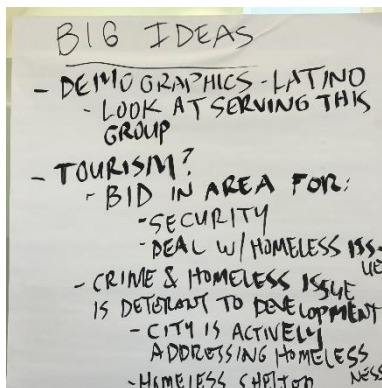 BIG IDEAS
- DEMOGRAPHICS - LATINO
- LOOK AT SERVING THIS
GROUP
- TOURISM?
- BID IN AREA FOR:
- SECURITY
- DEAL W/ HOMELESS ISS-
UE
- CRIME & HOMELESS ISSUE
IS DETERANT TO DEVELOPMENT
- CITY IS ACTIVELY
ADDRESSING HOMELESS
NESS
- HOMELESS SHELTER